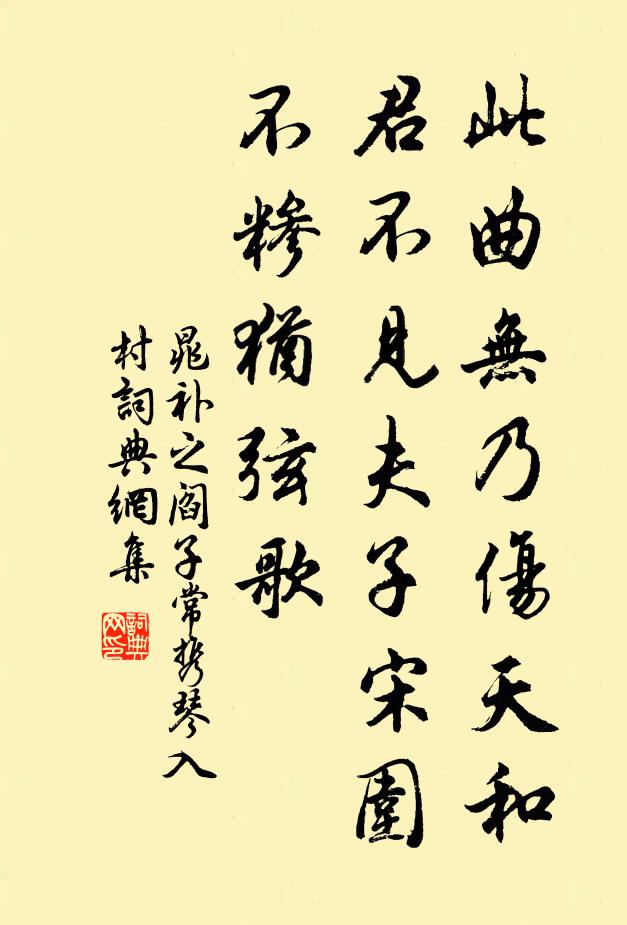 此曲無乃傷天和
君不見夫子宋圍
不糝猶弦歌
晁补之閻子常攜琴入
村詞典網集
詞典
网印